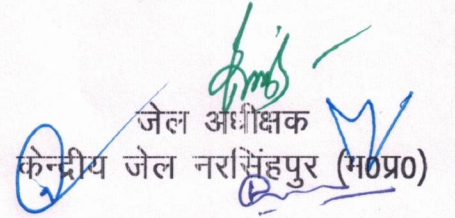 जेल अधीक्षक
केन्द्रीय जेल नरसिंहपुर (म0प्र0)